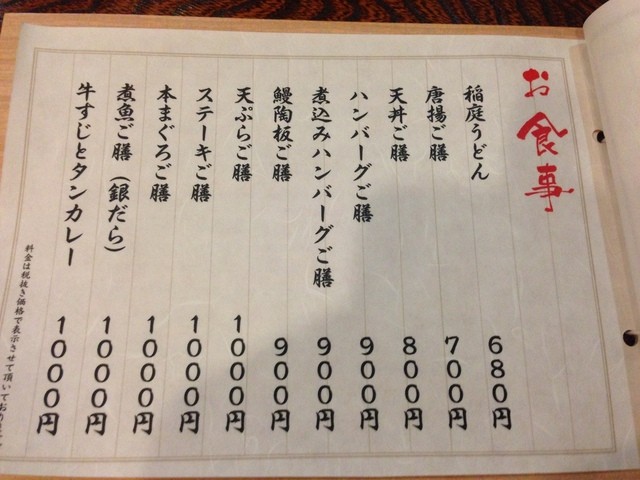 お食事
稲庭うどん 680円
唐揚ご膳 700円
天丼ご膳 800円
ハンバーグご膳 900円
煮込みハンバーグご膳 900円
鰻陶板ご膳 900円
天ぷらご膳 1000円
ステーキご膳 1000円
本まぐろご膳 1000円
煮魚ご膳(銀だら) 1000円
牛すじとタンカレー 1000円
料金は税抜き価格で表示させて頂いており